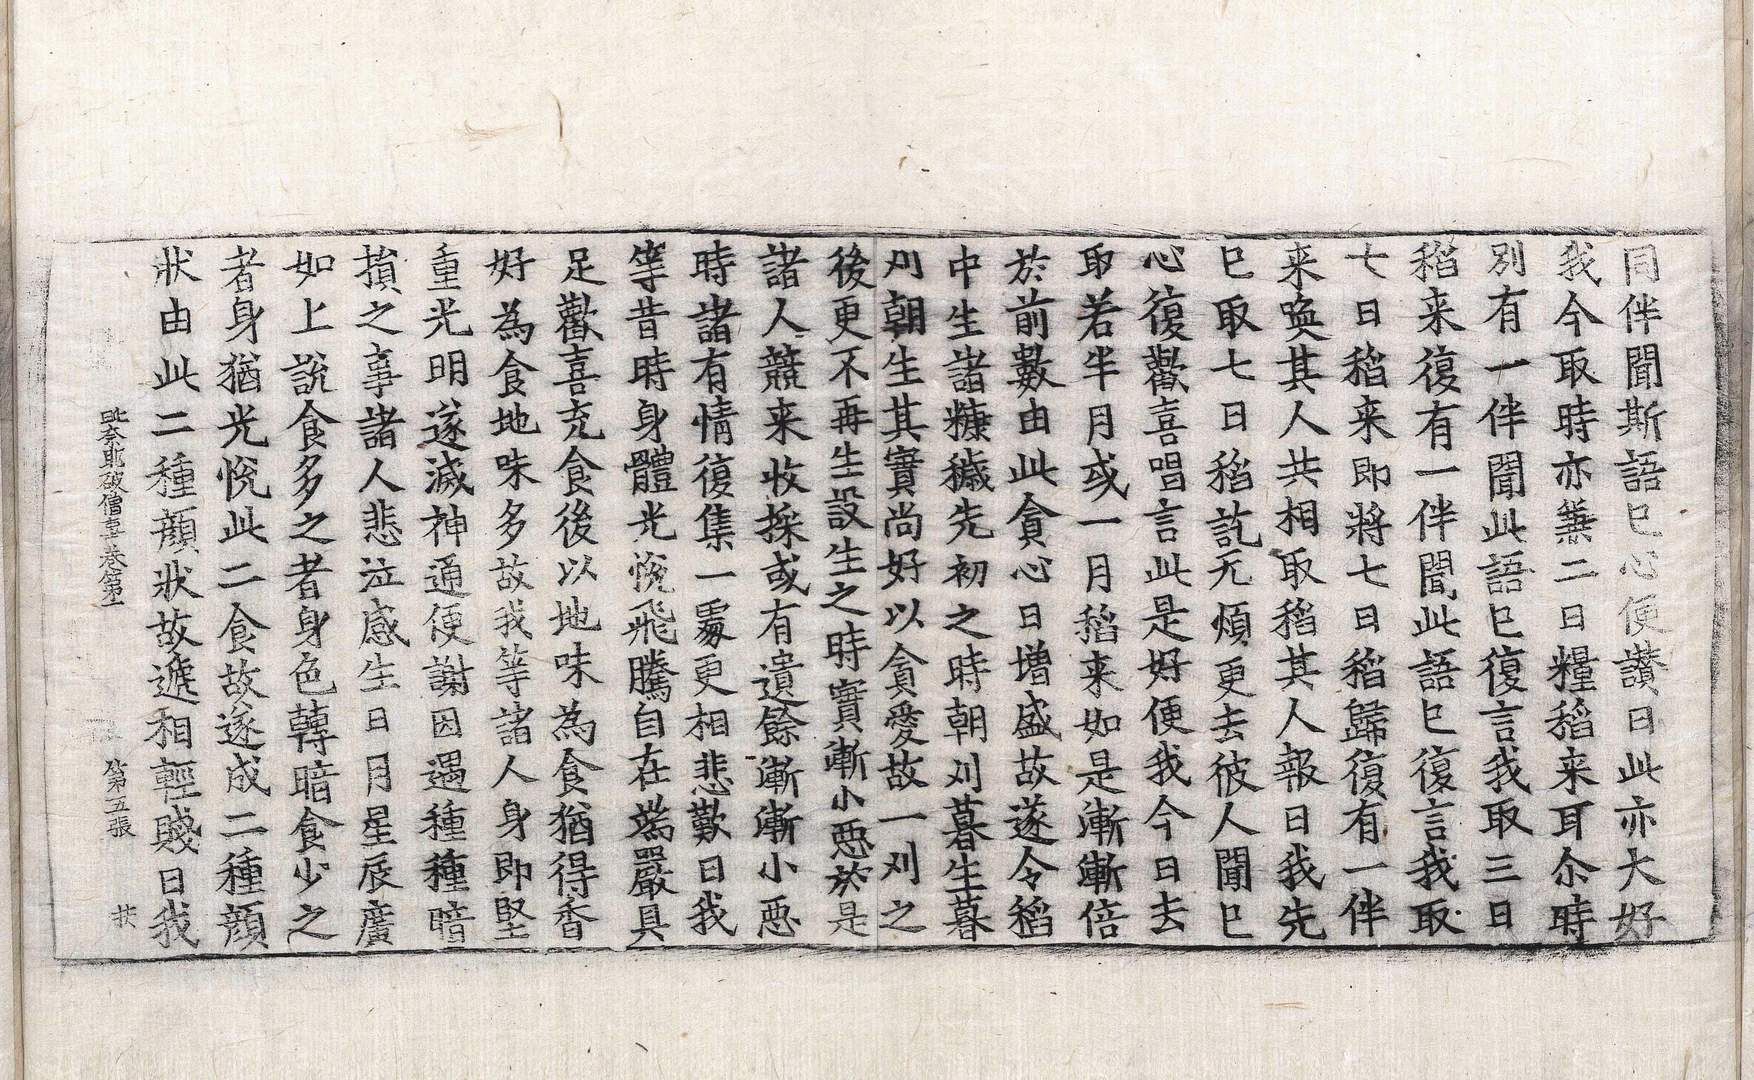 同伴聞斯語已心便讃曰此亦大好
我今取時亦兼二日糧稻来耳尒時
別有一伴聞此語已復言我取三日
稻来復有一伴聞此語已復言我取
七日稻来即將七日稻歸復有一伴
来喚其人共相取稻其人報曰我先
已取七日稻訖无煩更去彼人聞已
心復歡喜唱言此是好便我今日去
取若半月或一月稻来如是漸漸倍
於前數由此貪心日增盛故遂令稻
中生諸糠穢先初之時朝刈暮生暮
刈朝生其實尚好以貪愛故一刈之
後更不再生設生之時實漸小惡於是
諸人競来收採或有遺餘漸漸小惡
時諸有情復集一處更相悲歎曰我
等昔時身體光悅飛騰自在端嚴具
足歡喜充食後以地味為食猶得香
好為食地味多故我等諸人身即堅
重光明遂滅神通便謝因遇種種暗
損之事諸人悲泣感生日月星辰廣
如上說食多之者身色轉暗食少之
者身猶光悅此二食故遂成二種顔
狀由此二種顔狀故遞相輕賤曰我
毗奈耶破僧事卷第一 第五張 扶